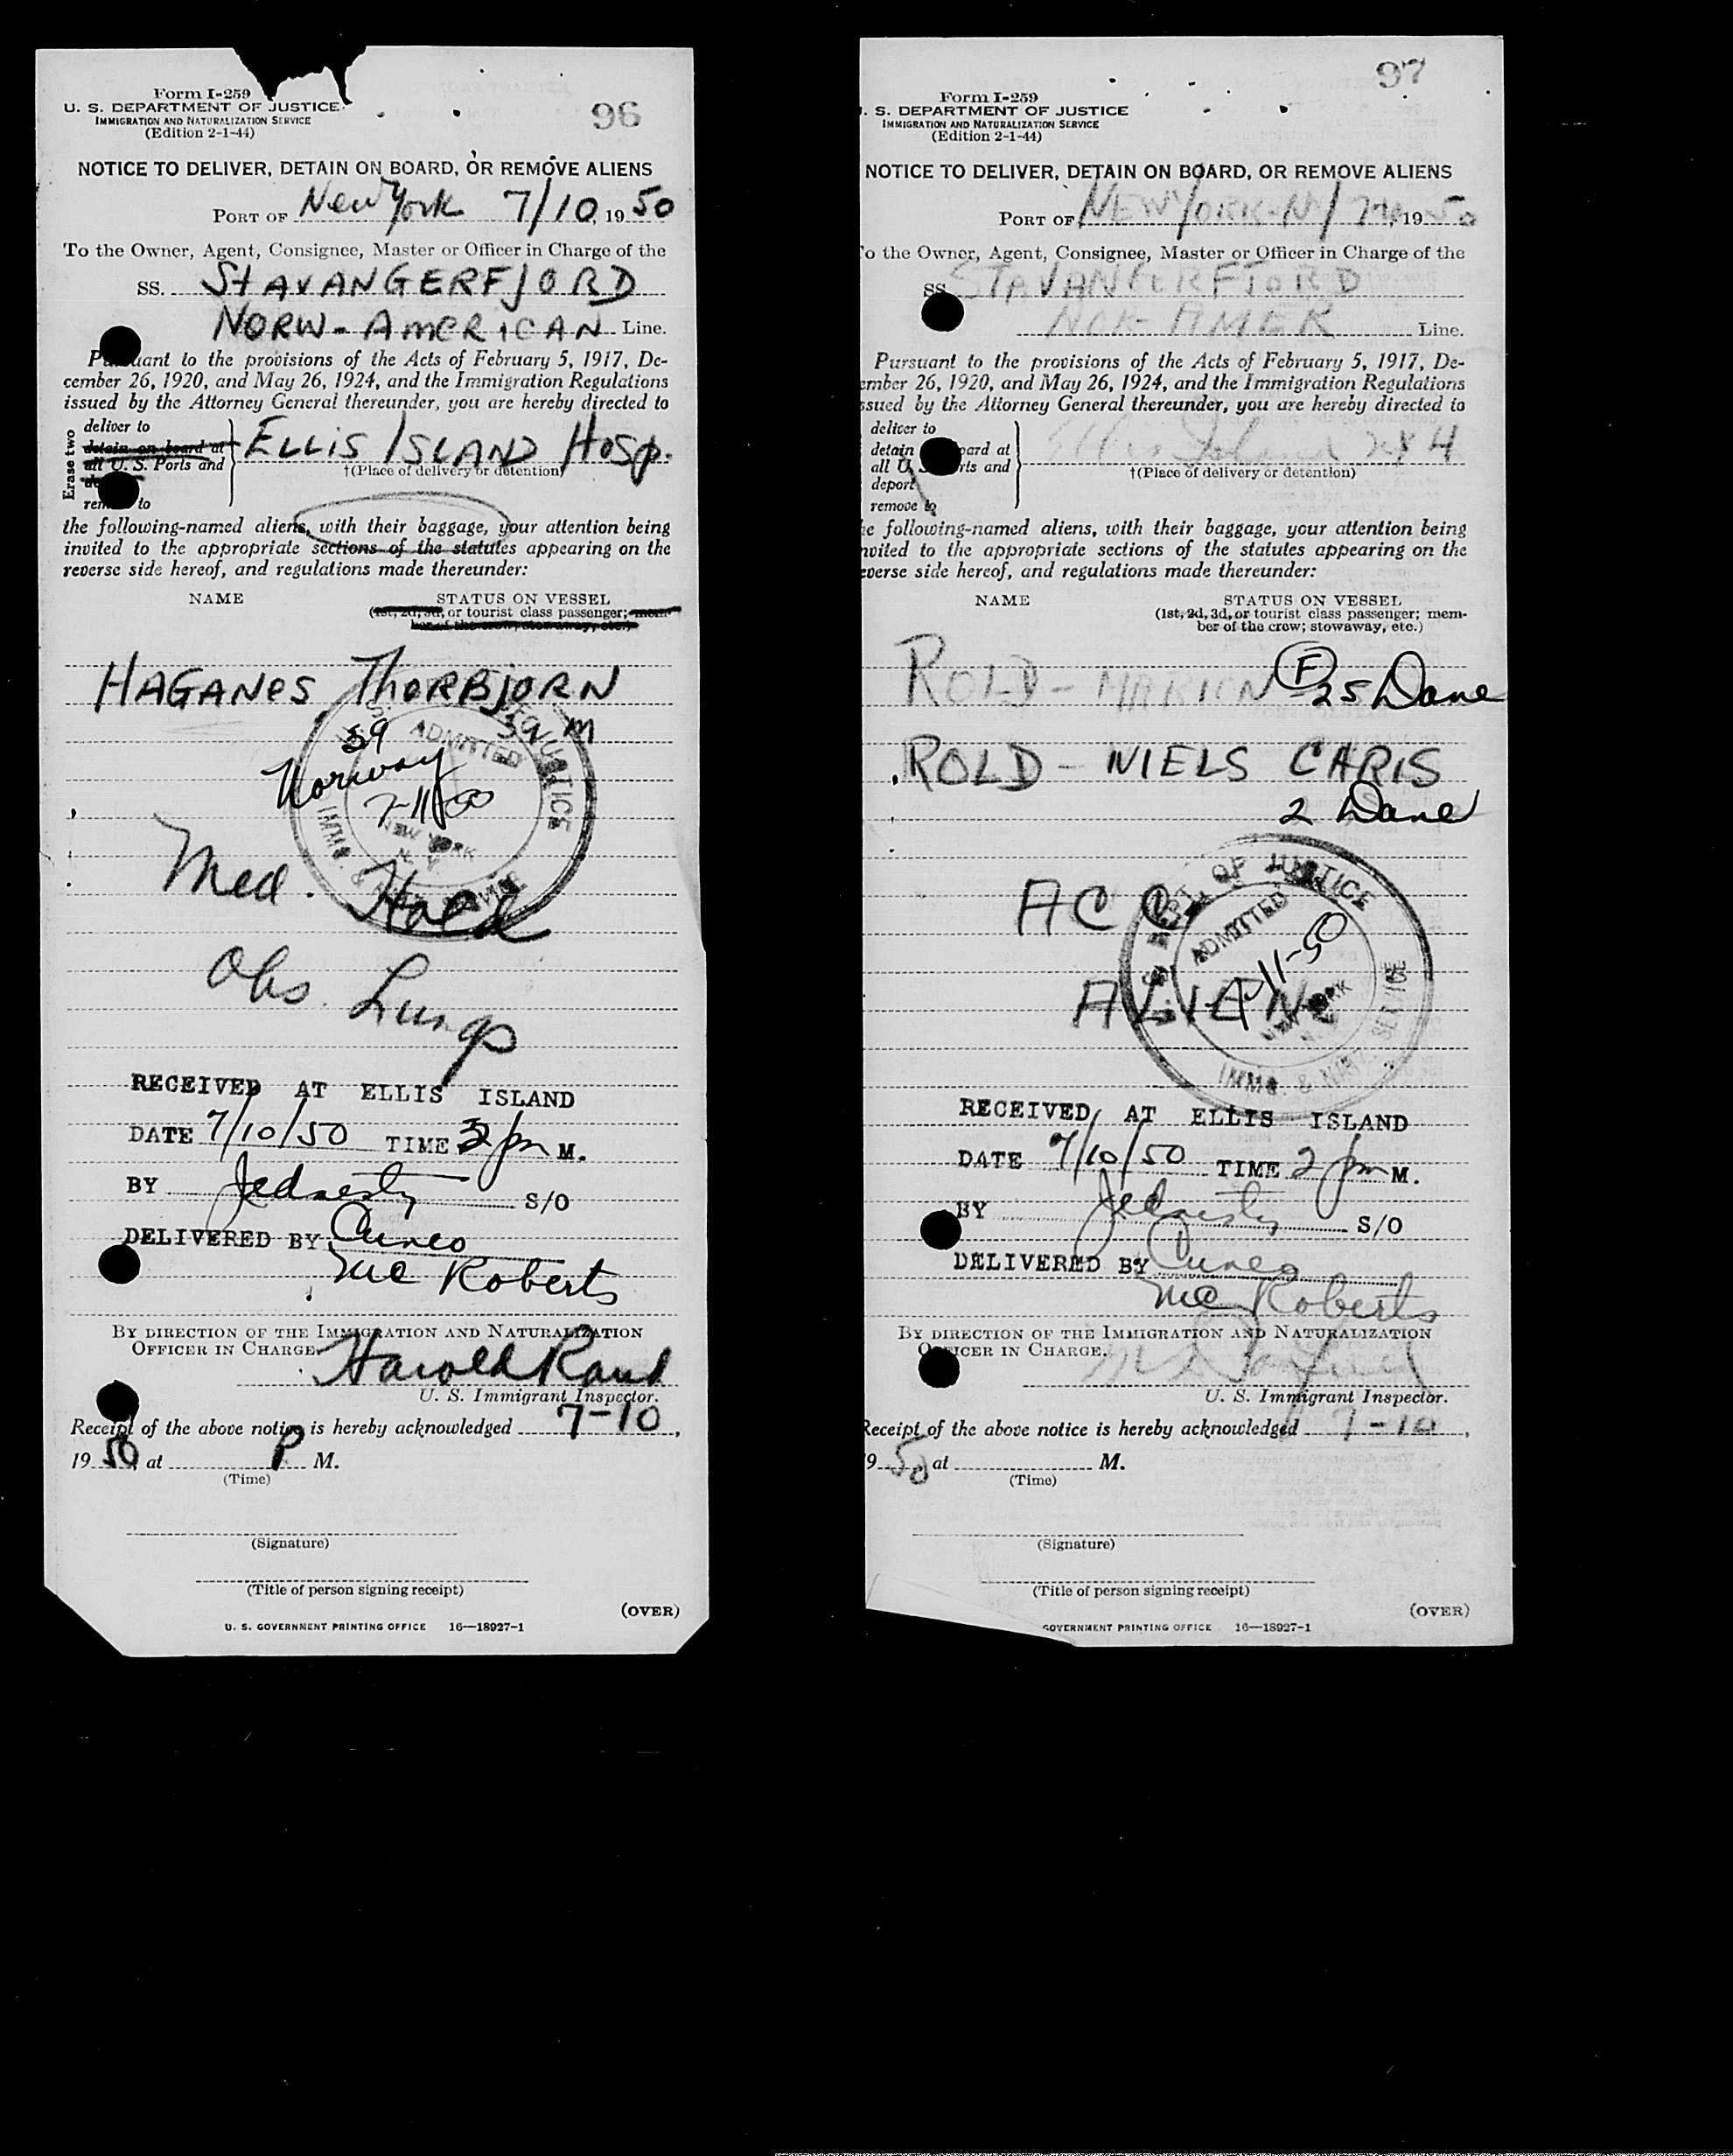 Form I-259
U. S. DEPARTMENT OF JUSTICE
IMMIGRATION AND NATURALIZATION SERVICE
(Edition 2-1-44)
96
NOTICE TO DELIVER, DETAIN ON BOARD, OR REMOVE ALIENS
PORT OF New York 7/10, 19 50
To the Owner, Agent, Consignee, Master or Officer in Charge of the
SS. STAVANGERFJORD
NORW-AMERICAN Line.
Pursuant to the provisions of the Acts of February 5, 1917, De-
cember 26, 1920, and May 26, 1924, and the Immigration Regulations
issued by the Attorney General thereunder, you are hereby directed to
Erase two
deliver to
detain on board at
all U. S. Ports and
remove to
ELLIS ISLAND HOSP.
†(Place of delivery or detention)
the following-named aliens, with their baggage, your attention being
invited to the appropriate sections of the statutes appearing on the
reverse side hereof, and regulations made thereunder:
NAME STATUS ON VESSEL
(1st, 2d, 3d, or tourist class passenger; mem-
ber of the crew; stowaway, etc.)
HAGANES, THORBJORN
39 M
59
Norway
7-11-50
U. S. JUSTICE
ADMITTED
NEW YORK
N. Y.
IMMG. &
Med. Hold
Obs. Lungs
RECEIVED AT ELLIS ISLAND
DATE 7/10/50 TIME 2 pm M.
BY S/O
DELIVERED BY Cuneo
McRoberts
BY DIRECTION OF THE IMMIGRATION AND NATURALIZATION
OFFICER IN CHARGE.
Harold Rand
U. S. Immigrant Inspector.
Receipt of the above notice is hereby acknowledged 7-10,
19 50 at P M.
(Time)
(Signature)
(Title of person signing receipt)
(OVER)
U. S. GOVERNMENT PRINTING OFFICE 16—18927-1
97
Form I-259
. S. DEPARTMENT OF JUSTICE
IMMIGRATION AND NATURALIZATION SERVICE
(Edition 2-1-44)
NOTICE TO DELIVER, DETAIN ON BOARD, OR REMOVE ALIENS
PORT OF NEW YORK-NY 7-10, 19 50
To the Owner, Agent, Consignee, Master or Officer in Charge of the
SS STAVANGERFJORD
NOR-AMER Line.
Pursuant to the provisions of the Acts of February 5, 1917, De-
ember 26, 1920, and May 26, 1924, and the Immigration Regulations
ssued by the Attorney General thereunder, you are hereby directed to
deliver to
detain board at
all U. Ports and
deport
remove to
Ellis Island
†(Place of delivery or detention)
he following-named aliens, with their baggage, your attention being
nvited to the appropriate sections of the statutes appearing on the
everse side hereof, and regulations made thereunder:
NAME STATUS ON VESSEL
(1st, 2d, 3d, or tourist class passenger; mem-
ber of the crew; stowaway, etc.)
ROLD - MARION F 25 Dane
ROLD - NIELS CARIS
2 Dane
ACC.
ALIEN
DEPT. OF JUSTICE
ADMITTED
7-11-50
NEW YORK
N. Y.
IMMG. & NAT. SERVICE
RECEIVED AT ELLIS ISLAND
DATE 7/10/50 TIME 2 pm M.
BY S/O
DELIVERED BY Cuneo
McRoberts
BY DIRECTION OF THE IMMIGRATION AND NATURALIZATION
OFFICER IN CHARGE.
U. S. Immigrant Inspector.
Receipt of the above notice is hereby acknowledged 7-10,
9 50 at M.
(Time)
(Signature)
(Title of person signing receipt)
(OVER)
GOVERNMENT PRINTING OFFICE 16—18927-1